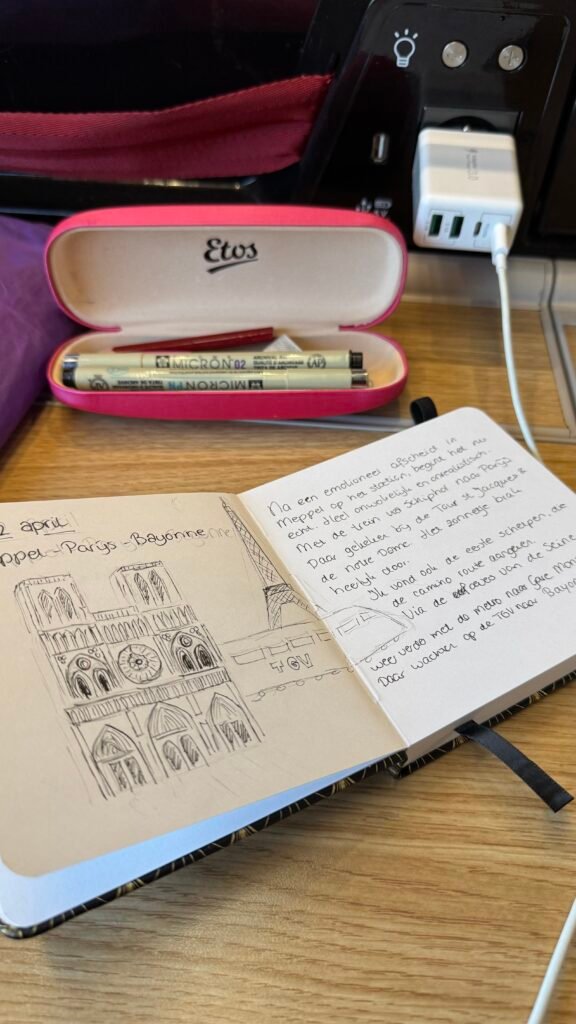 Etos
MICRON 02
MICRON
2 april
ppel - Parijs - Bayonne
TGV
Na een emotioneel afscheid in
Meppel op het station, begint het nu
echt. Heel onwerkelijk en onrealistisch.
Met de trein via Schiphol naar Parijs
Daar gekeken bij de Tour St Jacques &
de Notre Dame. Het zonnetje brak
heerlijk door.
Ik vond ook de eerste schelpen die
de camino route aangeven.
Via de oevers van de Seine
weer verder met de metro naar Gare Mon
Daar wachten op de TGV naar Bayo